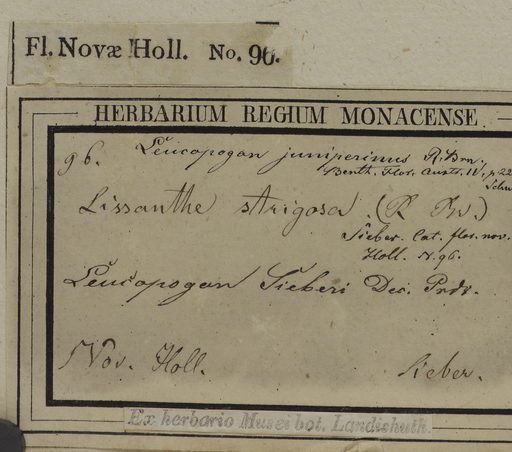 Fl. Novæ Holl. No. 96.
HERBARIUM REGIUM MONACENSE
96. Leucopogon juniperinus R. Brn.
Benth. Flor. Austr. IV, p. 22
Lissanthe strigosa (R Br.)
Sieber. Cat. flor. nov.
Holl. N. 96.
Leucopogon Sieberi Dec. Prdr.
Nov. Holl. Sieber.
Ex herbario Musei bot. Landishuth.